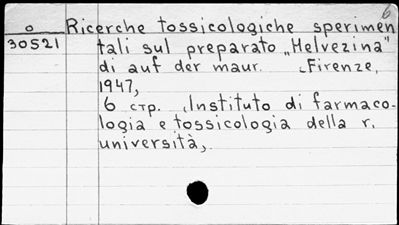 6
o Ricerche tossicologiche sperimen
30521 tali sul preparato „Helvezina"
di auf der maur. Firenze,
1947,
6 стр. (Instituto di farmaco-
logia e tossicologia della r.
università,.